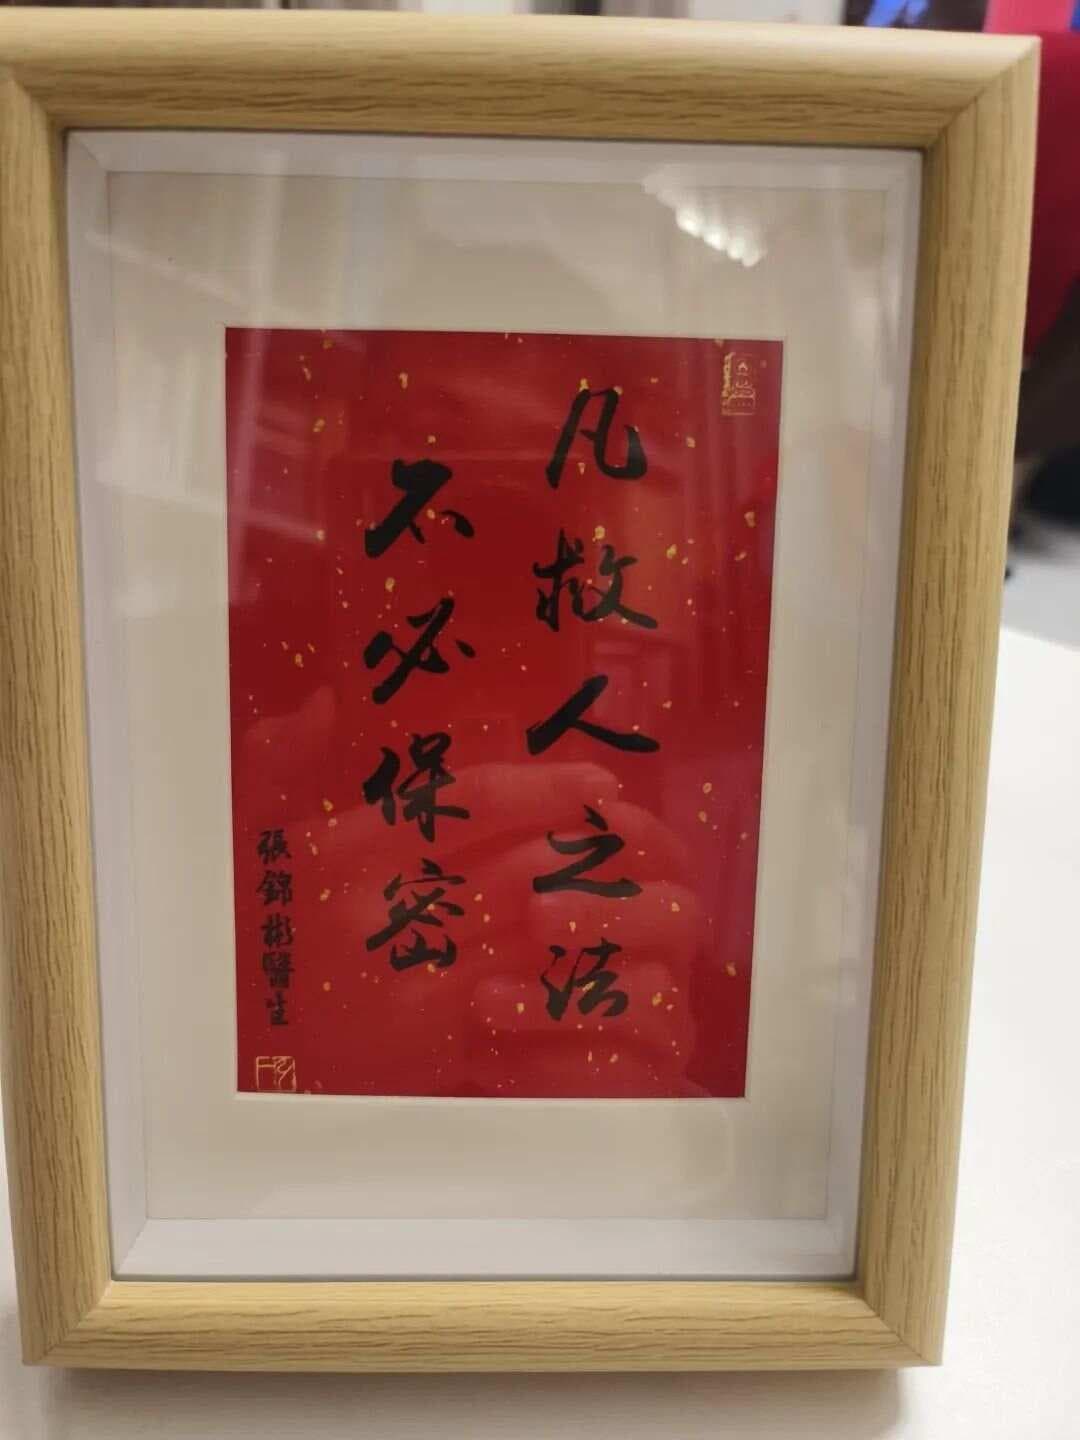 凡救人之法
不必保密
張錦彬醫生